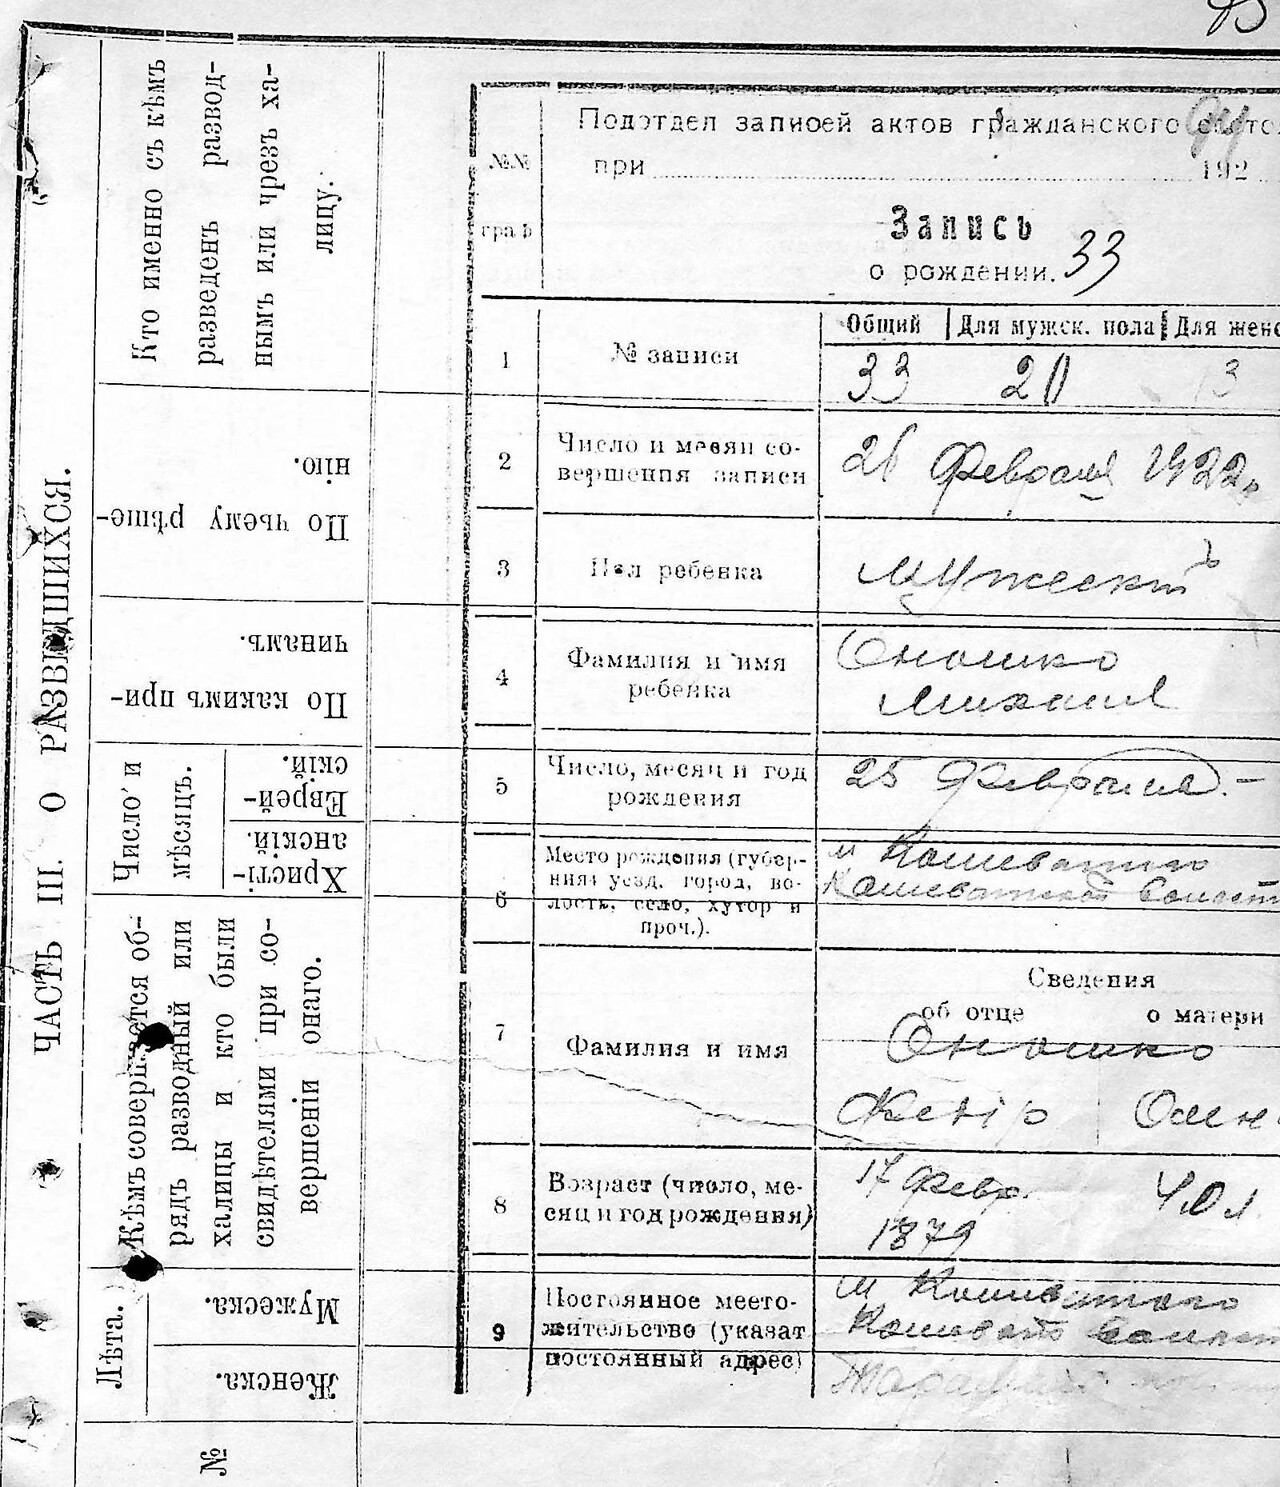 ЧАСТЬ III. О РАЗВЕДШИХСЯ.
Кто именно съ кѣмъ
разведенъ развод-
нымъ или чрезъ ха-
лицу.
По чьему рѣше-
нію.
По какимъ при-
чинамъ.
Число и
мѣсяцъ.
Еврей-
скій.
Христі-
анскій.
Кѣмъ совершается об-
рядъ разводный или
халицы и кто были
свидѣтелями при со-
вершеніи онаго.
Лѣта.
Мужеска.
Женска.
№
№№
граф
Подотдел записей актов гражданского
при 192
Запись
о рождении. 33
Общий Для мужск. пола Для женс
1 № записи 33 20 13
2 Число и месяц со-
вершения записи
26 Февраля 1922 г.
3 Пол ребенка
Мужескъ
4 Фамилия и имя
ребенка
Оношко
Михаил
5 Число, месяц и год
рождения
25 Февраля. -
6 Место рождения (губер-
ния, уезд, город, во-
лость, село, хутор и
проч.).
м Кошеватого
Кошеватской Волост
Сведения
об отце о матери
7 Фамилия и имя
Оношко
Олен
8 Возраст (число, ме-
сяц и год рождения)
17 февр.
1879
40 л.
9 Постоянное место-
жительство (указат
постоянный адрес)
м Кошеватого
Кошеват Волост